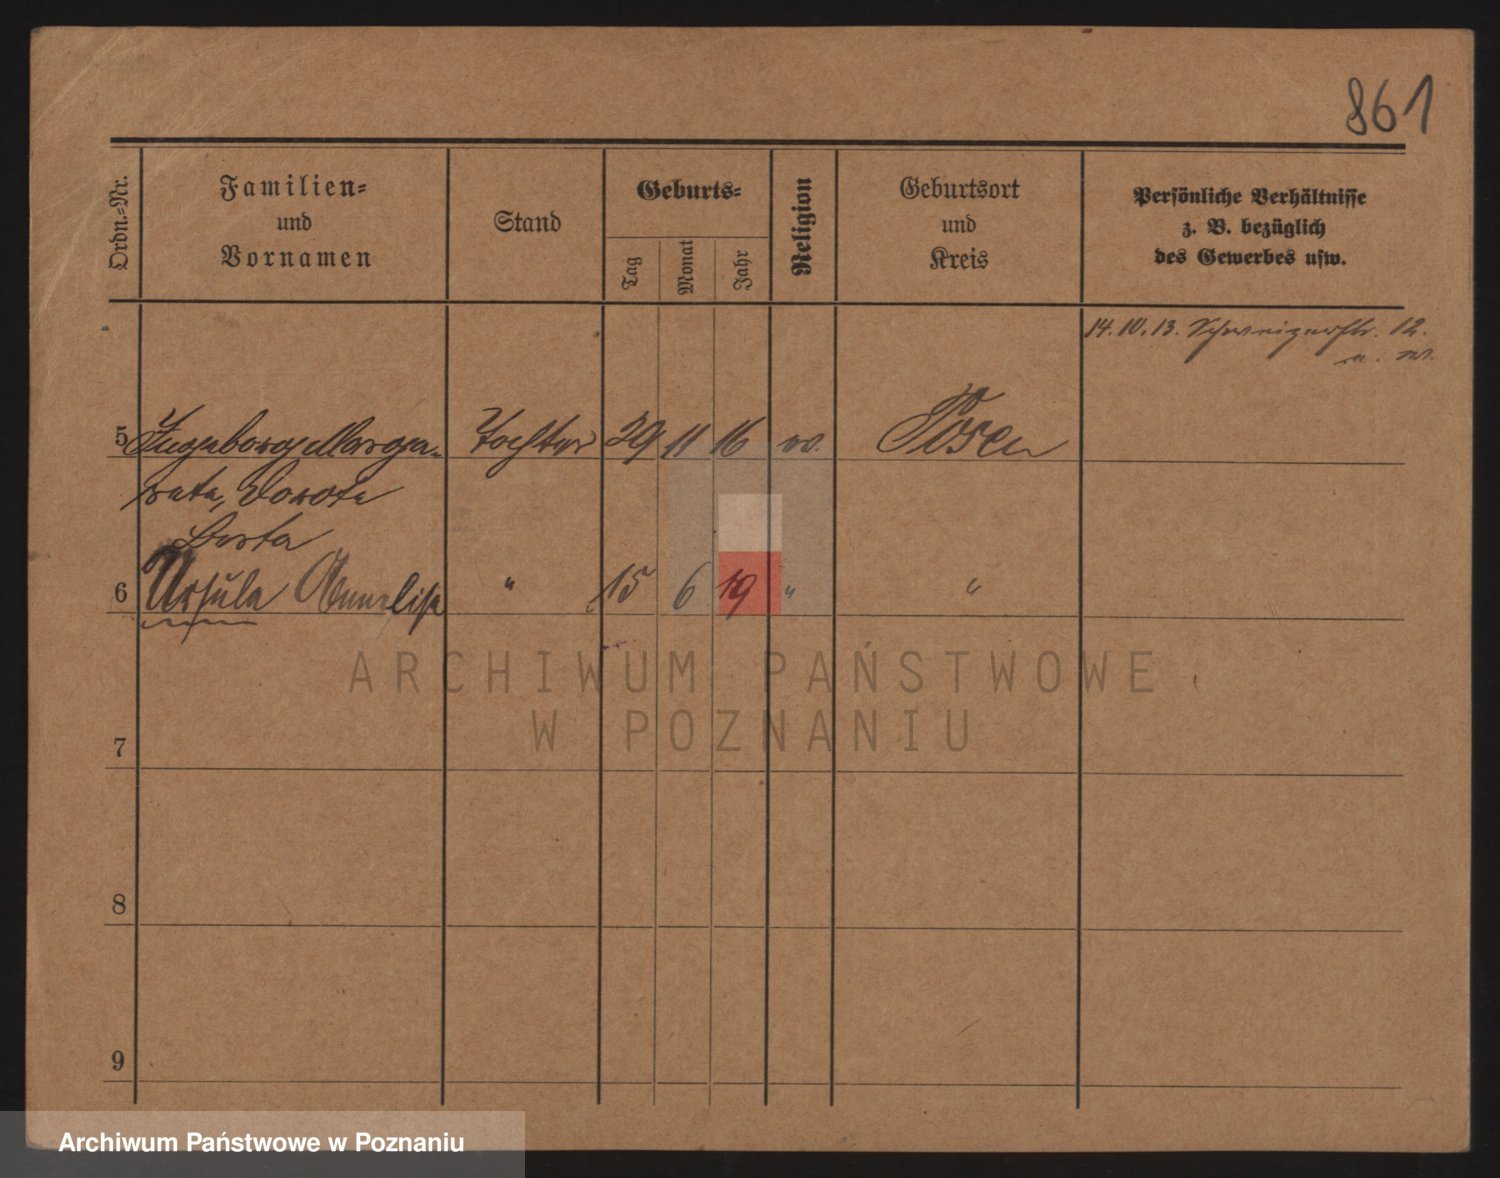 861
Ordn.-Nr.
Familien-
und
Vornamen
Stand
Geburts-
Tag
Monat
Jahr
Religion
Geburtsort
und
Kreis
Persönliche Verhältnisse
z. B. bezüglich
des Gewerbes usw.
14.10.13. Schweizerstr. 12.
5 Ingeborg Marga- Tochter 29 11 16 Posen
reta, Dorote
6 Ursula Annelise " 15 6 19 " "
ARCHIWUM PAŃSTWOWE
W POZNANIU
7
8
9
Archiwum Państwowe w Poznaniu